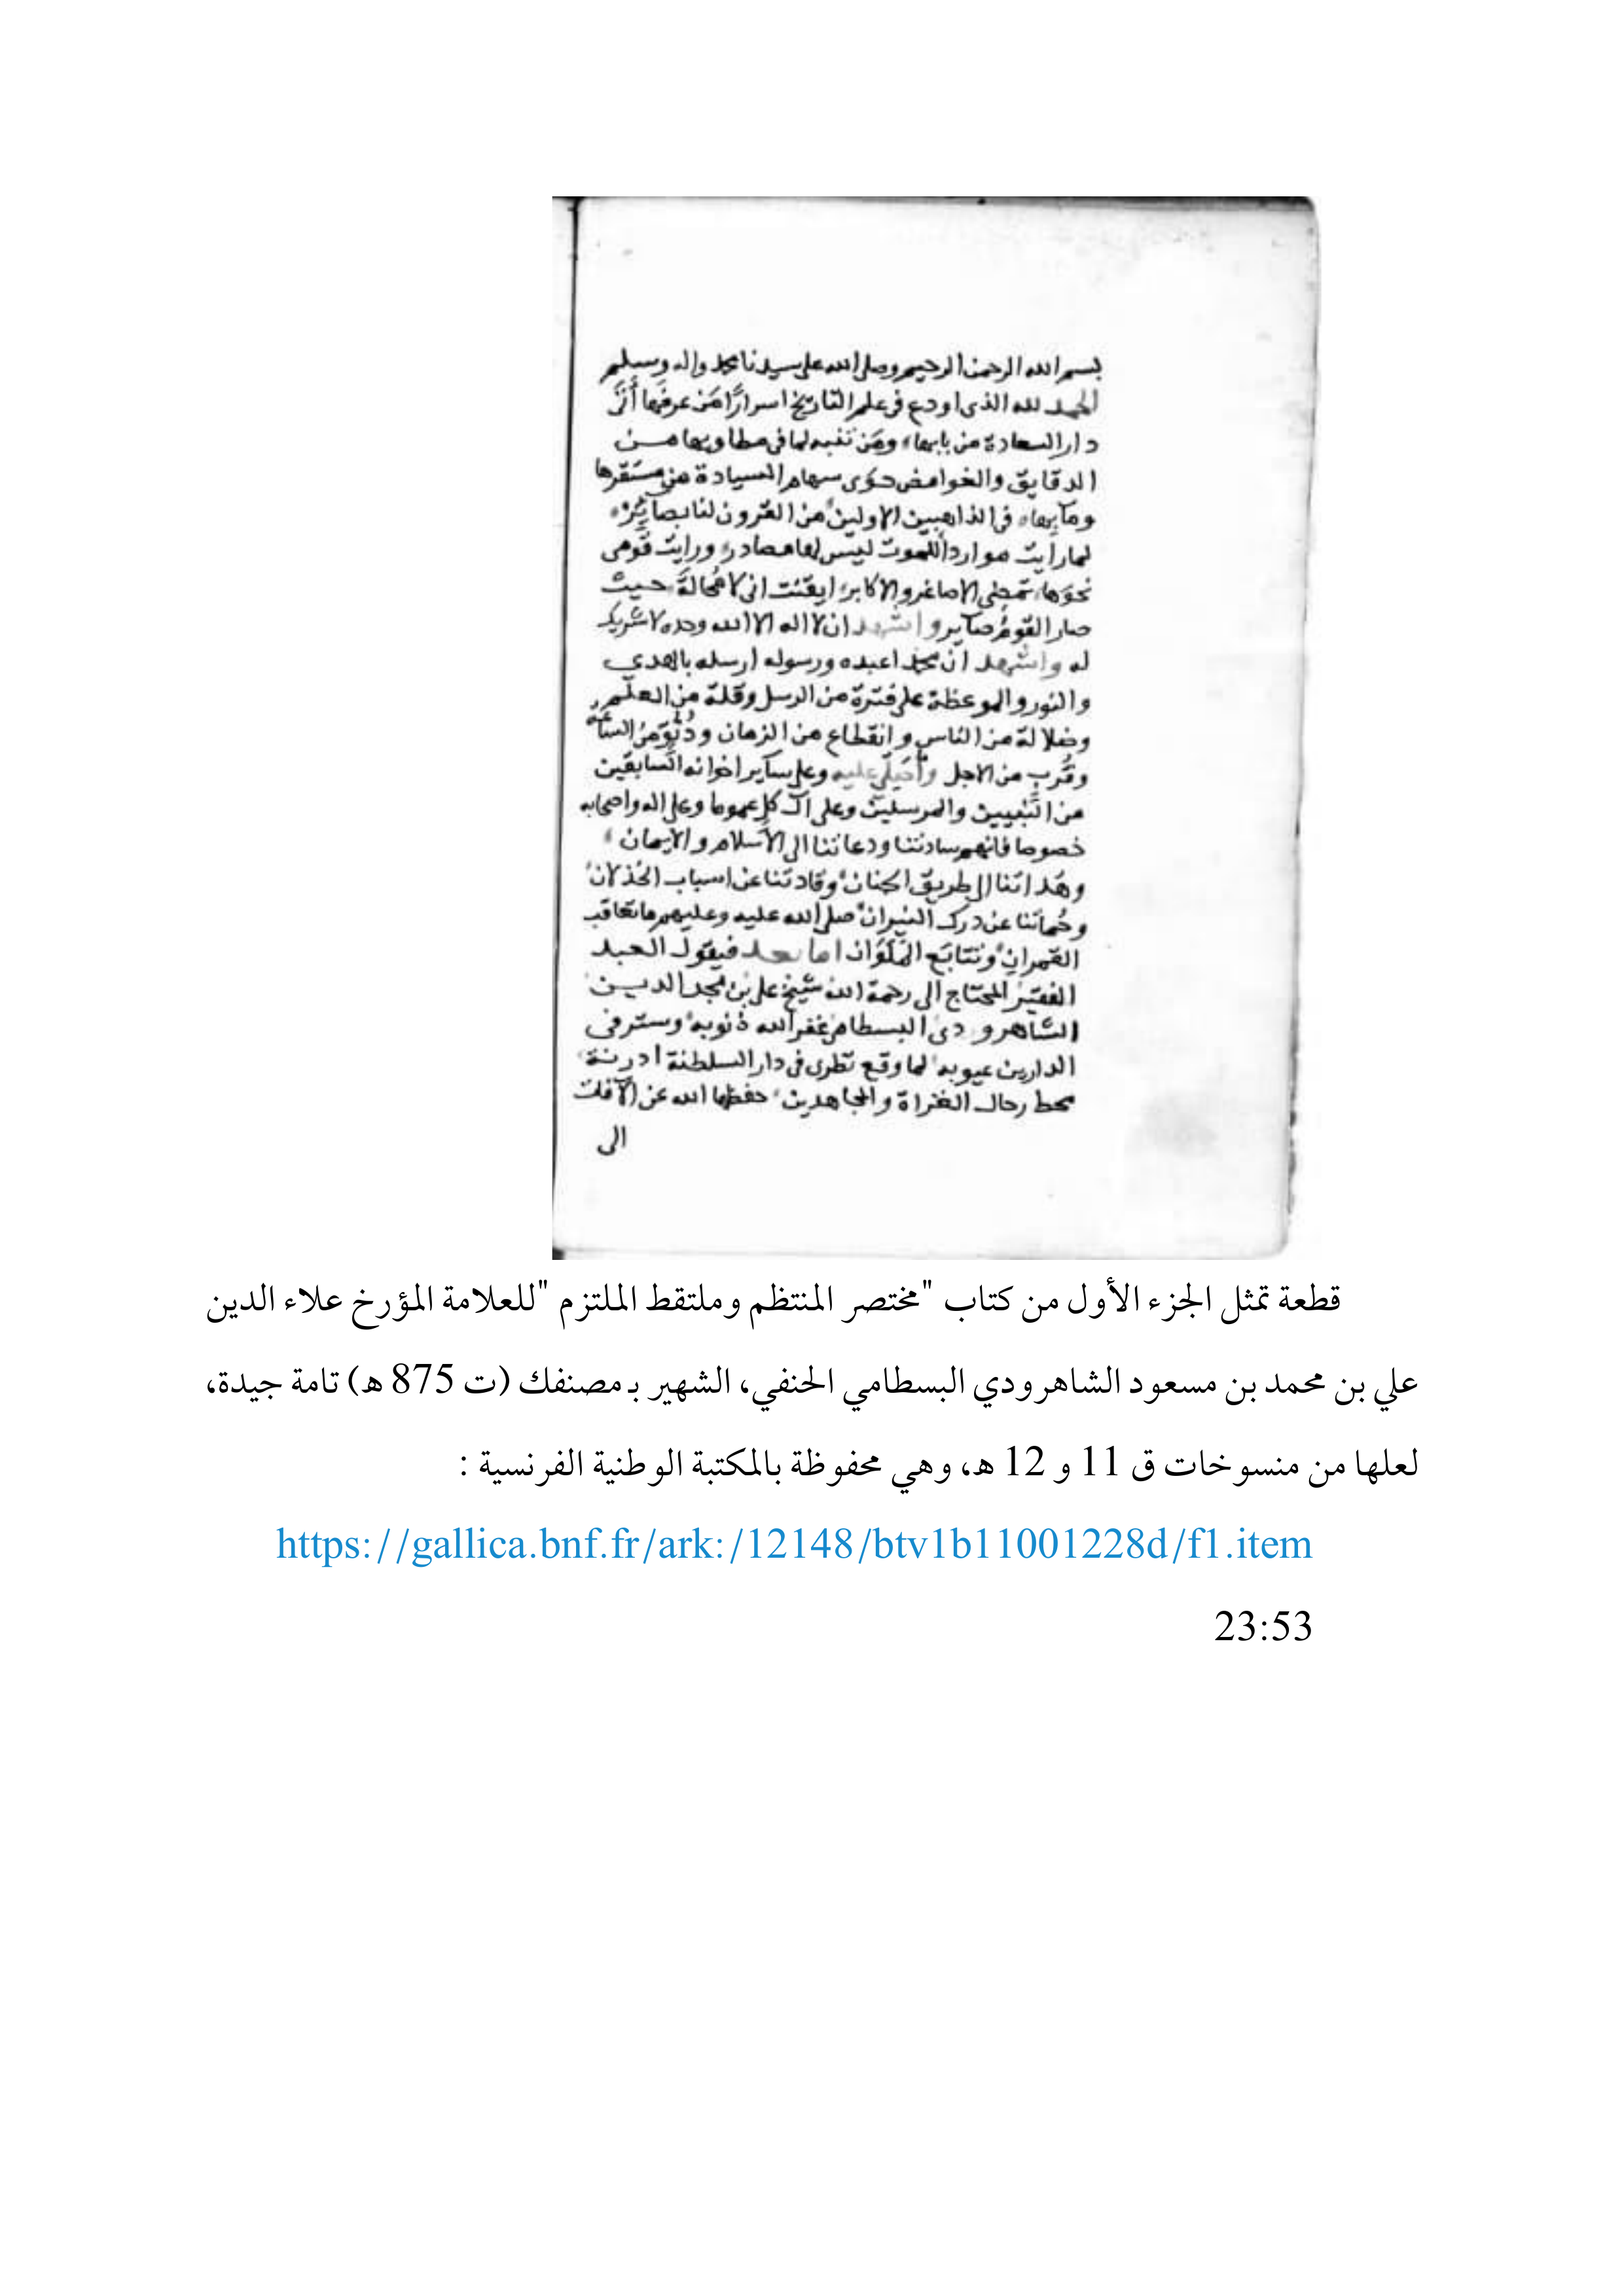 بسم الله الرحمن الرحيم وصلى الله على سيدنا محمد واله وسلم
الحمد لله الذى اودع فى علم التاريخ اسرارًا مَن عرفها أتى
دار السعادة من بابها، ومَن تنبه لما فى مطاويها مـــن
الدقايق والغوامض حوى سهام السيادة من مستقرها
ومآبها، فى الذاهبين الاولين من القرون لنا بصآئر،
لما رأيت موارداً للموت ليس لها مصادر، ورايت قومى
نحوها، تمضى الاصاغر والاكابر، ايقنت انى لا محالة، حيث
صار القوم صآير واشهد ان لا اله الا الله وحده لا شريك
له واشهد ان محمدا عبده ورسوله ارسله بالهدى
والنور والموعظة على فترة من الرسل وقلة من العلم
وضلالة من الناس وانقطاع من الزمان ودُنُوّ من الساعة
وقُرب من الاجل وأُصَلّى عليه وعلى سآير اخوانه السابقين
من النبيين والمرسلين وعلى آل كل عموما وعلى اله واصحابه
خصوصا فانهم سادتنا ودعاتنا الى الاسلام والايمان،
وهداتنا الى طريق الجنان وقادتنا عن اسباب الخذلان
وحُماتنا عن درك النيران صلى الله عليه وعليهم ما تعاقب
القمران وتتابع الملوان اما بعد فيقول العبد
الفقير المحتاج الى رحمة الله شيخ على بن مجد الديــن
الشاهرودى البسطامى غفر الله ذنوبه وستر فى
الدارين عيوبه لما وقع نظرى فى دار السلطنة ادرنة
محط رحال الغزاة والمجاهدين، حفظها الله عن الآفات
الى
قطعة تمثل الجزء الأول من كتاب "مختصر المنتظم وملتقط الملتزم "للعلامة المؤرخ علاء الدين
علي بن محمد بن مسعود الشاهرودي البسطامي الحنفي، الشهير بـ مصنفك (ت 875 ه) تامة جيدة،
لعلها من منسوخات ق 11 و 12 ه، وهي محفوظة بالمكتبة الوطنية الفرنسية :
https://gallica.bnf.fr/ark:/12148/btv1b11001228d/f1.item
23:53